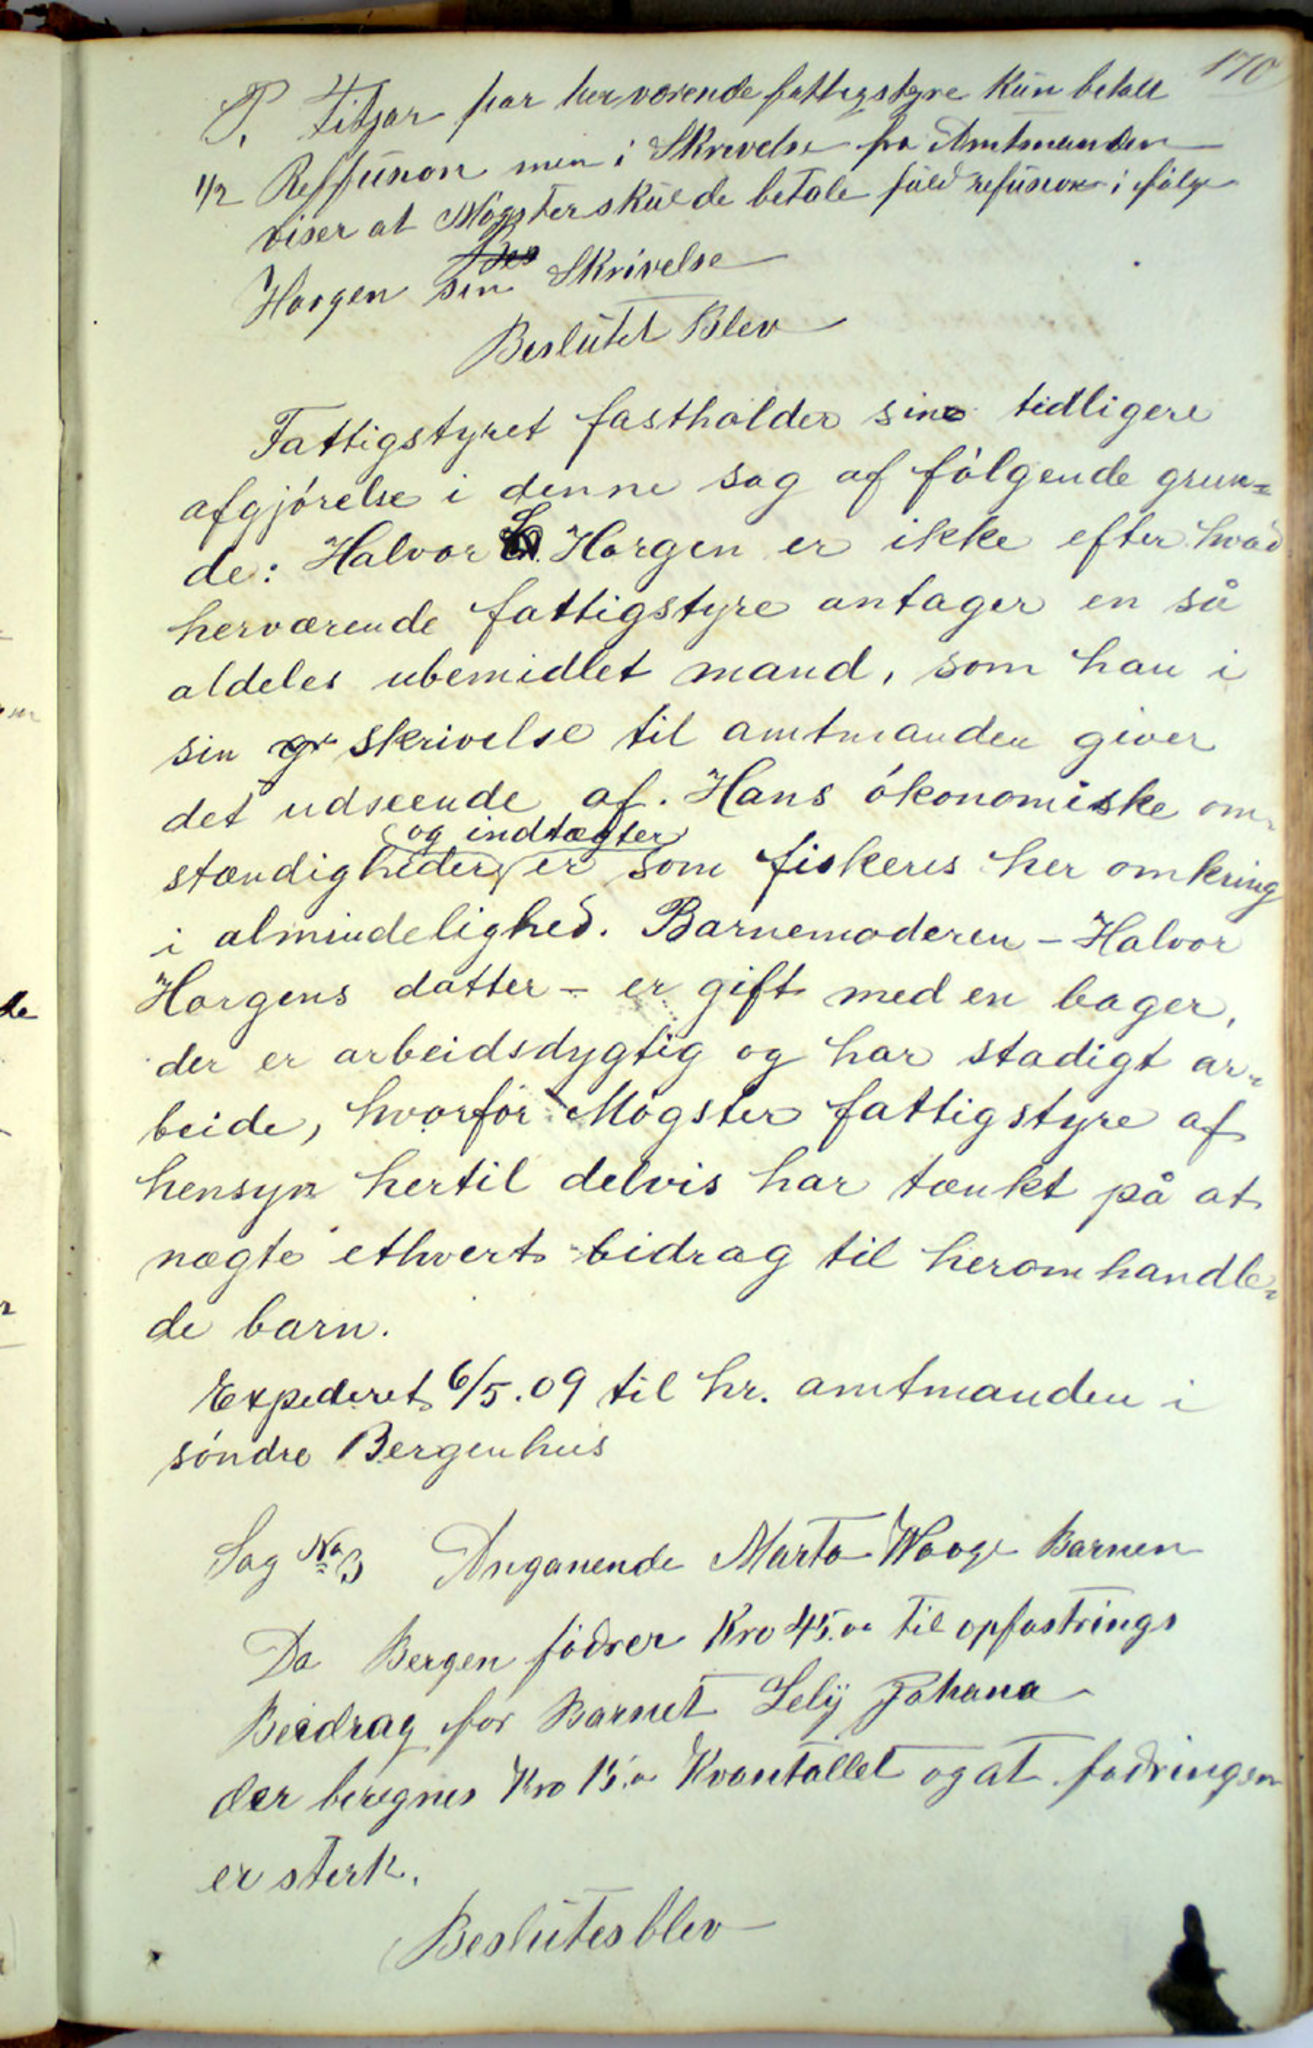 170
P. Fitjar har herværende fattigstyre kun betalt
1/2 Reffusion men i Skrivelse fra Amtmanden
viser at Møgster skulde betale fuld refusion i følge
Horgen sin Skrivelse
Beslutet Blev
Fattigstyret fastholder sine tidligere
afgjørelse i denne sag af følgende grun=
de: Halvor L. Horgen er ikke efter hvad
herværende fattigstyre antager en så
aldeles ubemidlet mand, som han i
sin skrivelse til amtmanden giver
det udseende af. Hans økonomiske om-
stændigheder og indtægter er som fiskeres her omkring
i almindelighed. Barnemoderen – Halvor
Horgens datter – er gift med en bager,
der er arbeidsdygtig og har stadigt ar-
beide, hvorfor Møgster fattigstyre af
hensyn hertil delvis har tænkt på at
nægte ethvert bidrag til heromhandle-
de barn.
Expederet 6/5.09 til hr. amtmanden i
søndre Bergenhus
Sag No 3 Anganende Marta Waage Barnen
Da Bergen fodrer Kro 45.00 til opfostrings
Beidrag for Barnet Lely Johana
der beregnes Kro 15.00 Kvantallet og at fodringen
er sterk.
Beslutes blev